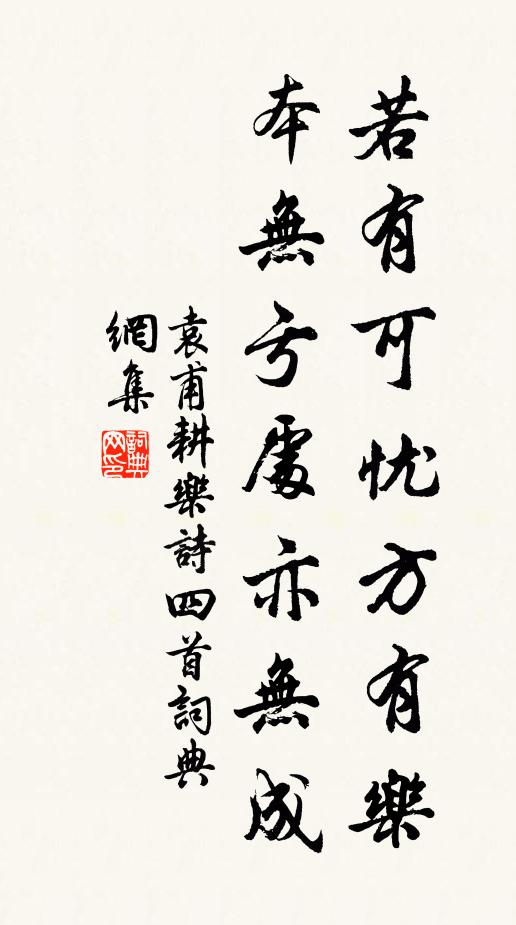 若有可忧方有樂
本無亏處亦無成
袁甫耕樂詩四首詞典
網集
詞典
网印